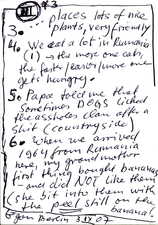 III #3
3. places lots of nice
plants, very friendly
4. We eat a lot in Rumania
(1) → the more one eats
the faster/easier/more one
gets hungry.
5. Papa told me that
sometimes DEGS licked
the assholes clan after a
shit (countryside)
6. When we arrived
1964 from Rumania
here, my grandmother
first thing bought bananas
- and did NOT like them
(she bit into them with
the peel still on the
banana).
Berlin